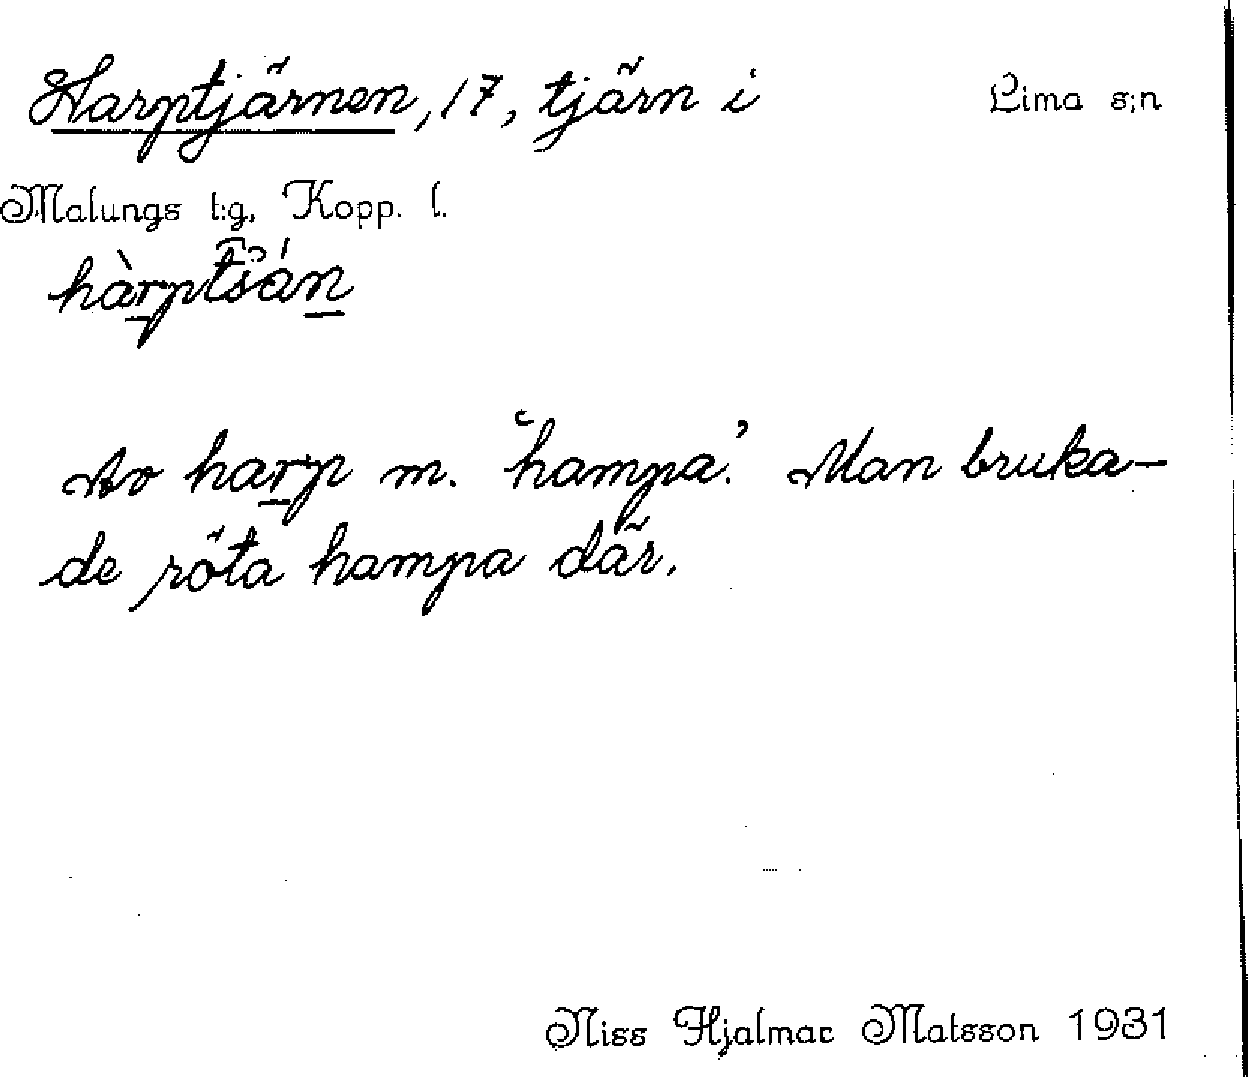 Harptjärnen, 17, tjärn i Lima s:n
Malungs t:g, Kopp. l.
hàrptšán
Av harp m. 'hampa'. Man bruka-
de röta hampa där.
Niss Hjalmar Matsson 1931